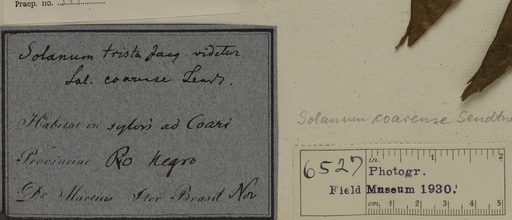 Praep. no.
Solanum trista Jacq. videtur
Sol. coarense Sendt.
Habitat in sylvis ad Coari
Provinciae Rio Negro
Dr. Martius Iter Brasil Nov
Solanum coarense Sendtn
6527
in. 1 2
Photogr.
Field Museum 1930.
cm. 1 2 3 4 5